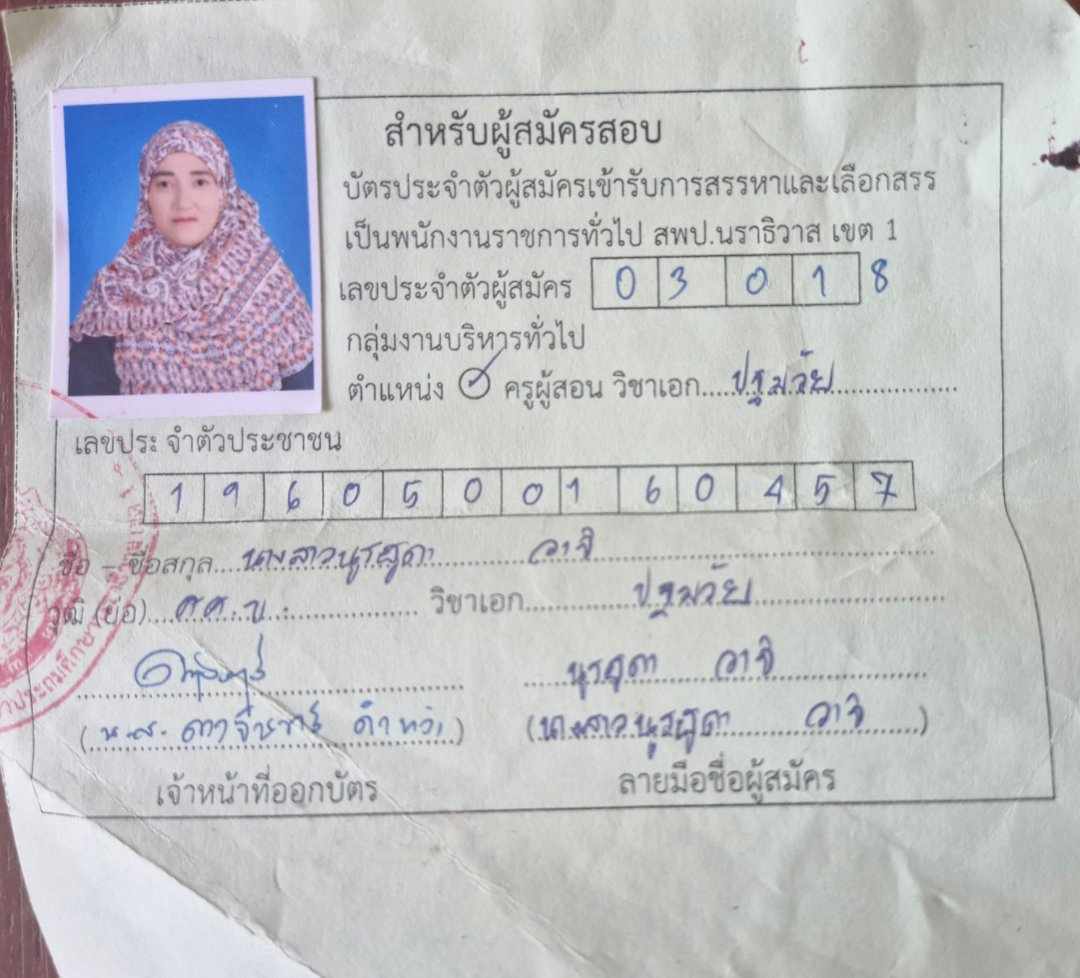 สำหรับผู้สมัครสอบ
บัตรประจำตัวผู้สมัครเข้ารับการสรรหาและเลือกสรร
เป็นพนักงานราชการทั่วไป สพป.นราธิวาส เขต 1
เลขประจำตัวผู้สมัคร 0 3 0 1 8
กลุ่มงานบริหารทั่วไป
ตำแหน่ง ครูผู้สอน วิชาเอก....ปฐมวัย
เลขประจำตัวประชาชน
1 9 6 0 5 0 0 1 6 0 4 5 7
ชื่อ – ชื่อสกุล....นางสาว วาจิ
วุฒิ (ย่อ)....ศศ.บ. วิชาเอก....ปฐมวัย
วาจิ
(น.ส.) (นางสาว วาจิ)
เจ้าหน้าที่ออกบัตร ลายมือชื่อผู้สมัคร